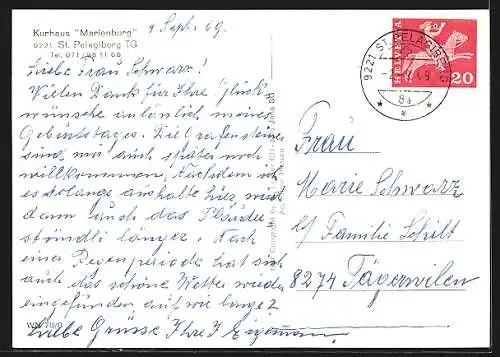 Kurhaus "Marienburg"
9221 St. Pelagiberg TG
Tel. 071 / 98 11 66
1 Sept. 69.
Liebe Frau Schwarz!
Vielen Dank für Ihre Glück-
wünsche anlänlich meines
Geburtstages. Die
sind mir auch später noch
willkommen. Nachdem ich
es solange aushalte hier, wird
dann auch das
stündli länger. Nach
einer Regenperiode hat sich
auch das schöne Wetter wieder
eingefunden auf wie lange?
Liebe Grüsse Ihre
WN 711/0
HELVETIA
20
9221 ST. PELAGIBERG
8a
Frau
Marie Schwarz
b/ Familie Schilt
8274 Tägerwilen